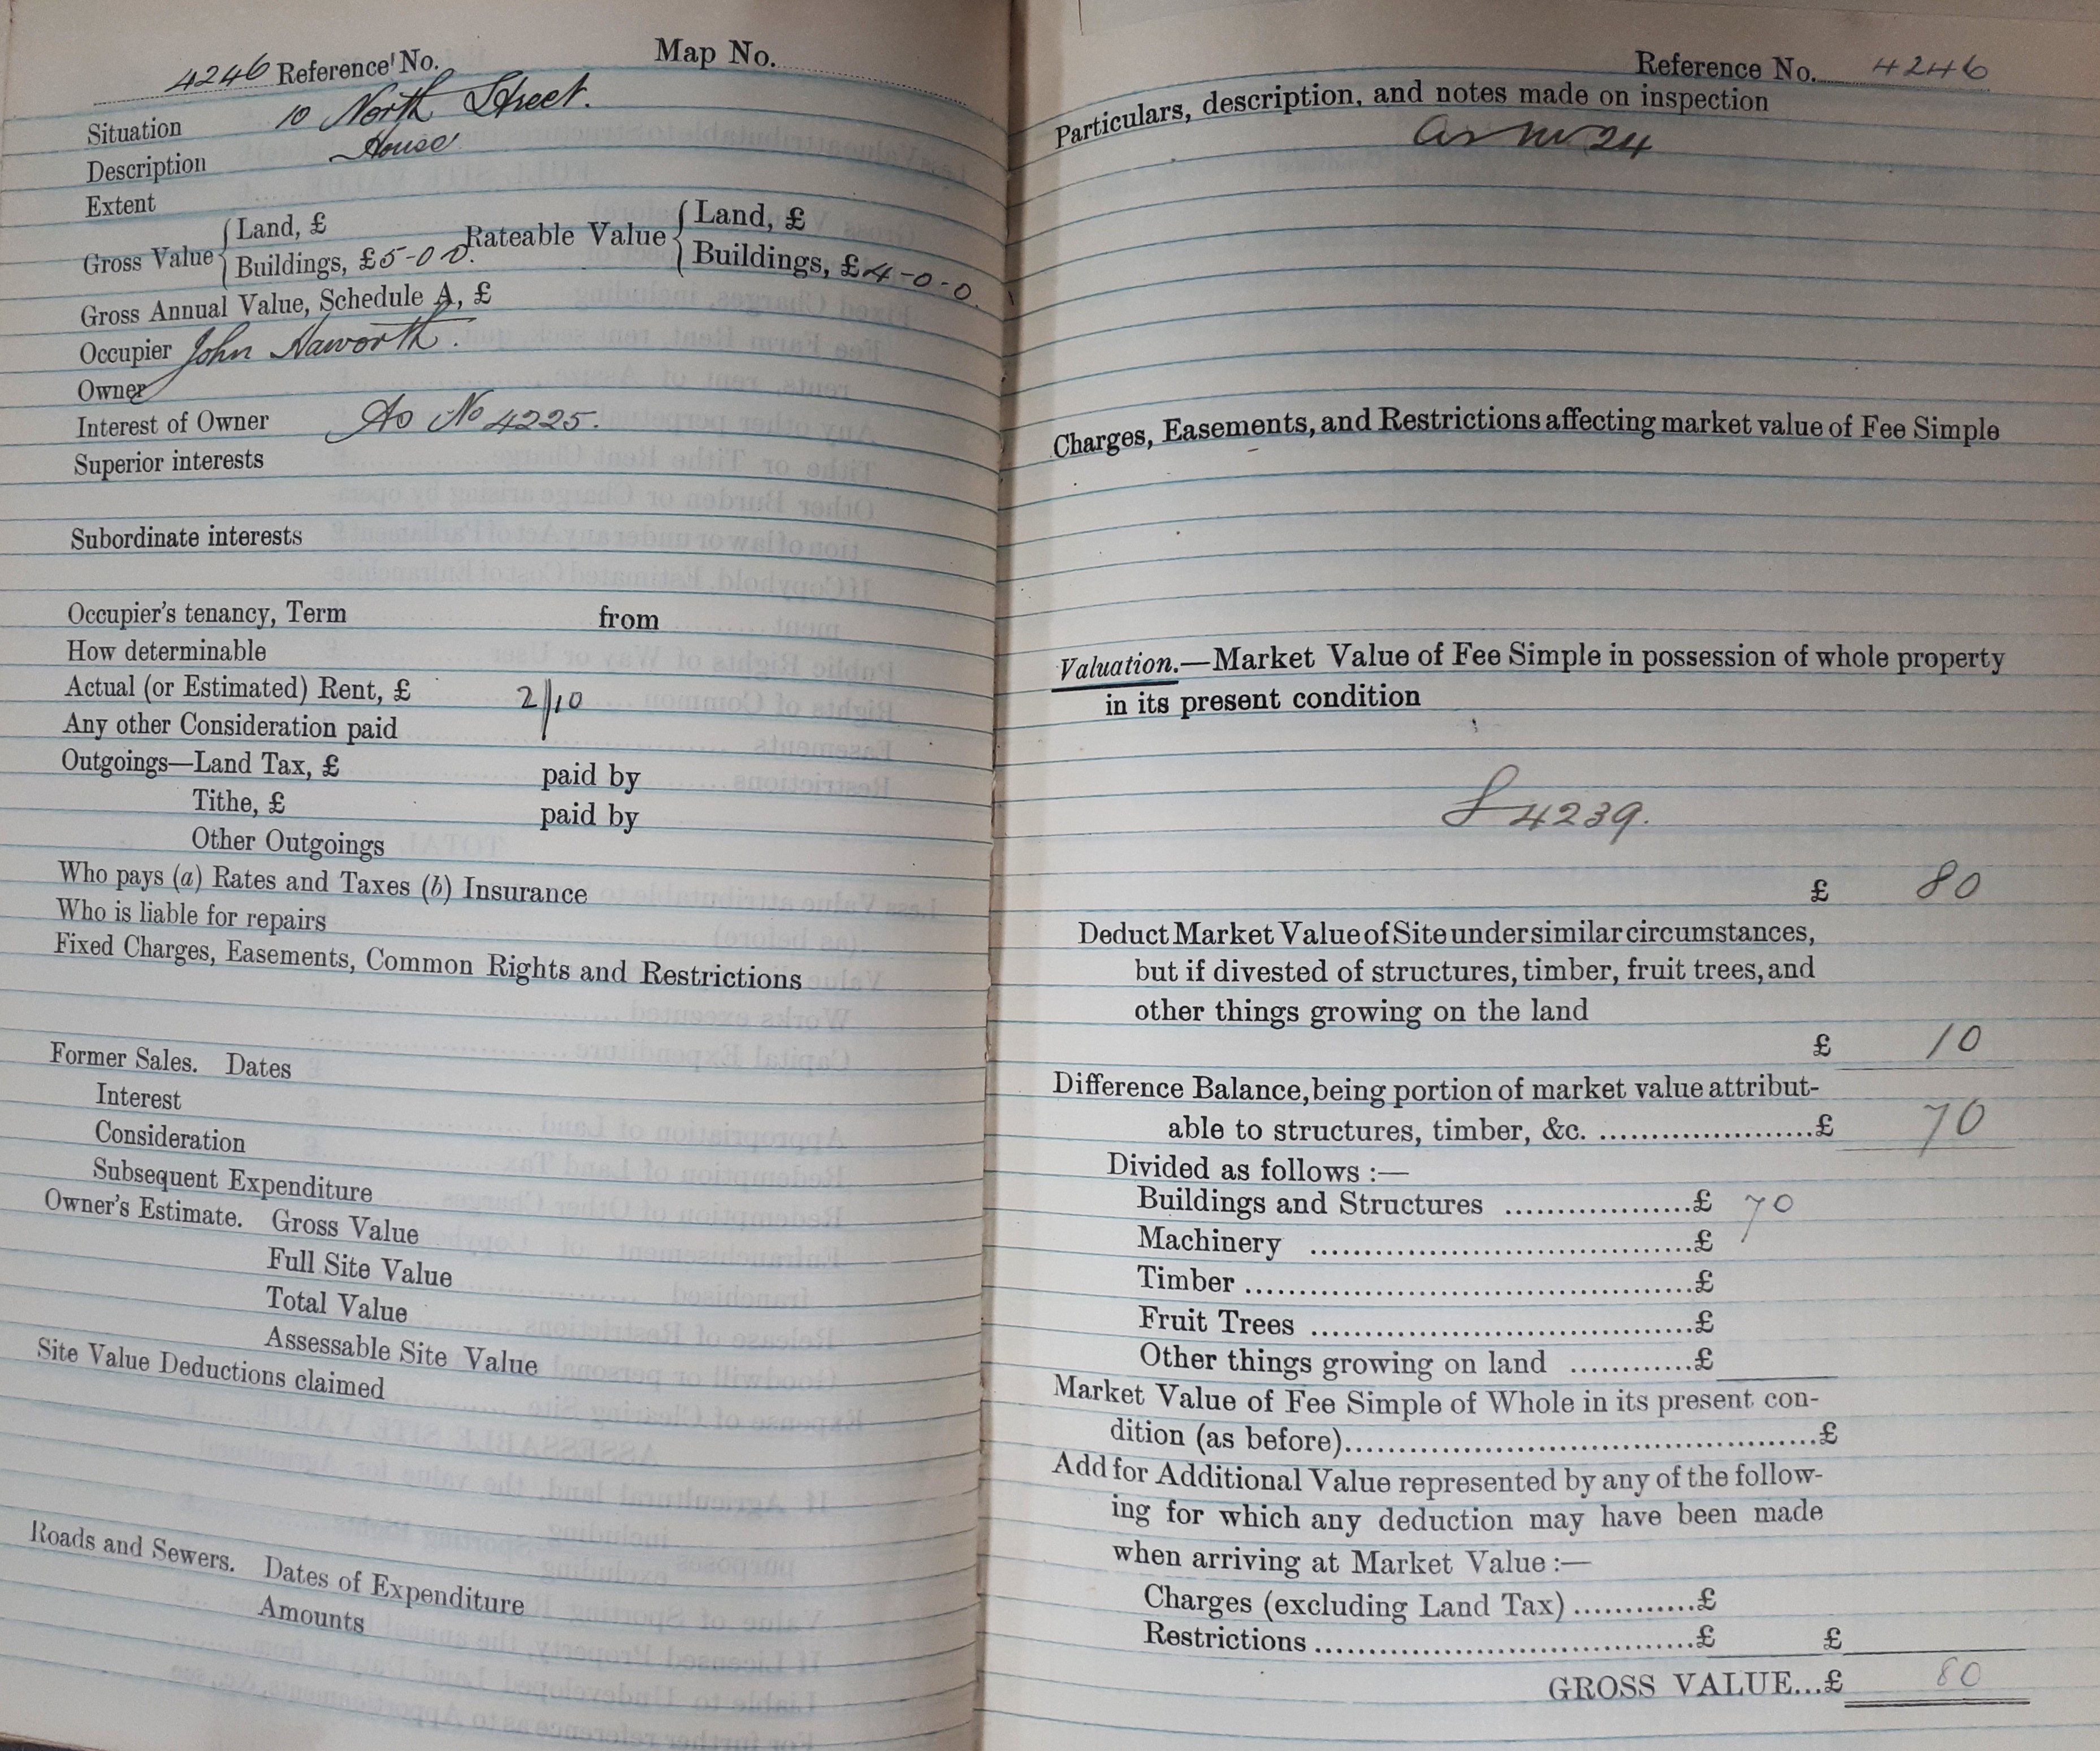 4246 Reference No. Map No.
Situation 10 North Street.
Description House
Extent
Gross Value { Land, £
Buildings, £5-0-0. Rateable Value { Land, £
Buildings, £4-0-0.
Gross Annual Value, Schedule A, £
Occupier John Haworth.
Owner
Interest of Owner As No 4225.
Superior interests
Subordinate interests
Occupier's tenancy, Term from
How determinable
Actual (or Estimated) Rent, £ 2/10
Any other Consideration paid
Outgoings—Land Tax, £ paid by
Tithe, £ paid by
Other Outgoings
Who pays (a) Rates and Taxes (b) Insurance
Who is liable for repairs
Fixed Charges, Easements, Common Rights and Restrictions
Former Sales. Dates
Interest
Consideration
Subsequent Expenditure
Owner's Estimate. Gross Value
Full Site Value
Total Value
Assessable Site Value
Site Value Deductions claimed
Roads and Sewers. Dates of Expenditure
Amounts
Reference No. 4246
Particulars, description, and notes made on inspection
as 24
Charges, Easements, and Restrictions affecting market value of Fee Simple
Valuation.—Market Value of Fee Simple in possession of whole property
in its present condition
4239.
£ 80
Deduct Market Value of Site under similar circumstances,
but if divested of structures, timber, fruit trees, and
other things growing on the land
£ 10
Difference Balance, being portion of market value attribut-
able to structures, timber, &c. ...£ 70
Divided as follows :—
Buildings and Structures ...£ 70
Machinery ...£
Timber ...£
Fruit Trees ...£
Other things growing on land ...£
Market Value of Fee Simple of Whole in its present con-
dition (as before)...£
Add for Additional Value represented by any of the follow-
ing for which any deduction may have been made
when arriving at Market Value :—
Charges (excluding Land Tax) ...£
Restrictions ...£ £
GROSS VALUE...£ 80